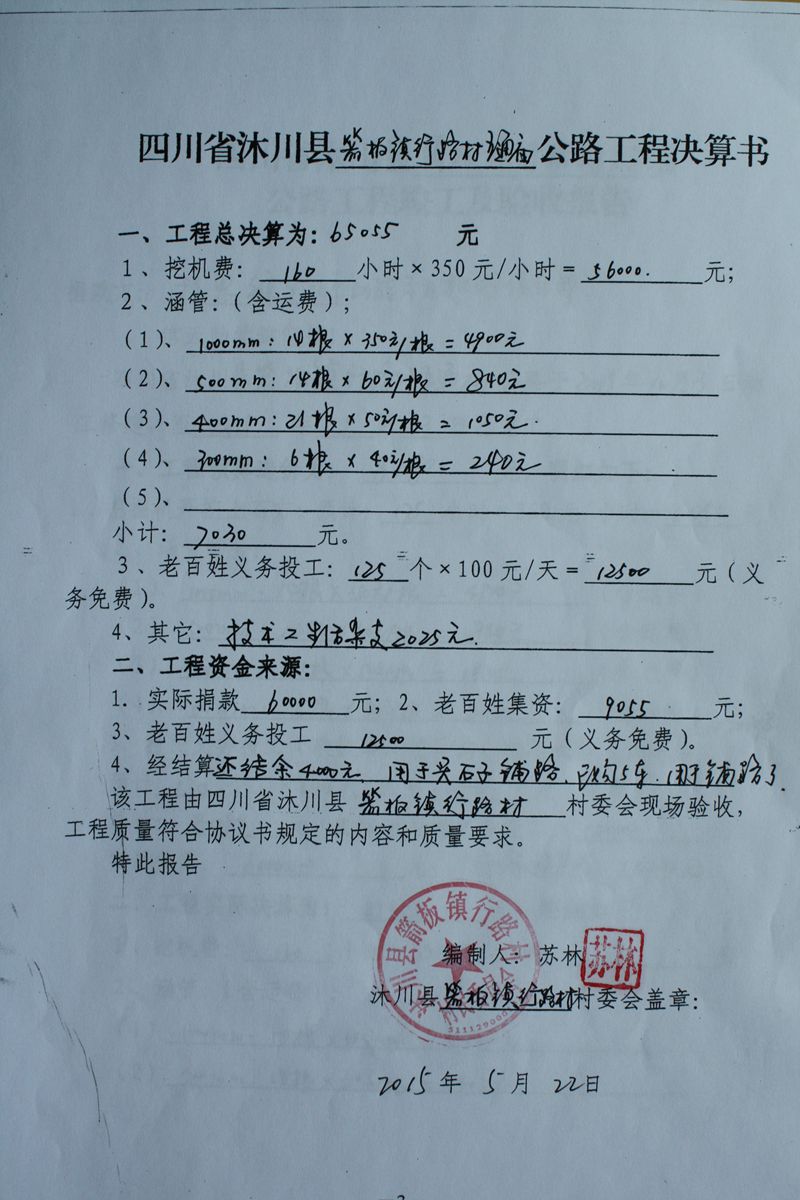 四川省沐川县箭板镇行路村通畅公路工程决算书
一、工程总决算为：65055 元
1、挖机费：160小时×350元/小时=56000.元；
2、涵管：（含运费）；
（1）、1000mm：14根×350元/根=4900元
（2）、500mm：14根×60元/根=840元
（3）、400mm：21根×50元/根=1050元.
（4）、300mm：6根×40元/根=240元
（5）、
小计：7030元。
3、老百姓义务投工：125个×100元/天=12500元（义
务免费）。
4、其它：技术工 支2025元.
二、工程资金来源：
1. 实际捐款60000元；2、老百姓集资：9055元；
3、老百姓义务投工 12500 元（义务免费）。
4、经结算还结余4000元，用于 石子铺路，已 5车.用于铺路了.
该工程由四川省沐川县箭板镇行路村村委会现场验收，
工程质量符合协议书规定的内容和质量要求。
特此报告
沐川县箭板镇行路村
村民委员会
编制人：苏林 苏林
沐川县箭板镇行路村村委会盖章：
2015年5月22日